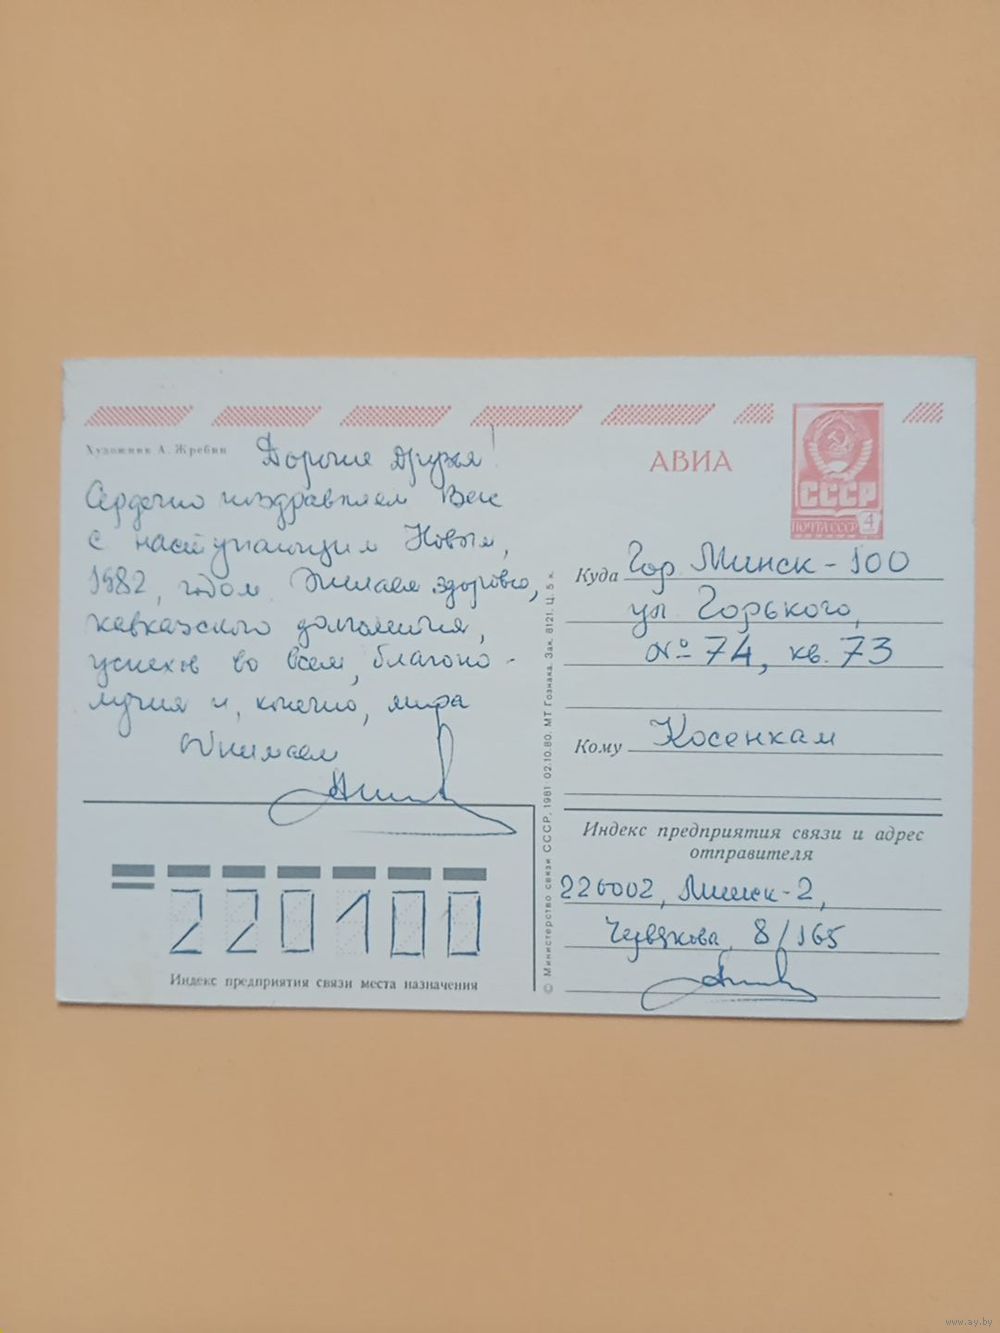 Художник А. Жребин
Дорогие друзья!
Сердечно поздравляем Вас
с наступающим Новым,
1982, годом. Желаем здоровья,
кавказского долголетия,
успехов во всем, благопо-
лучия и, конечно, мира
Обнимаем
220100
Индекс предприятия связи места назначения
© Министерство связи СССР, 1981 02.10.80. МТ Гознака. Зак. 8121. Ц. 5 к.
АВИА
СССР
ПОЧТА СССР 4
Куда Гор. Минск - 100
ул. Горького,
№ 74, кв. 73
Кому Косенкам
Индекс предприятия связи и адрес
отправителя
220002, Минск-2,
Червякова, 8/165
www.ay.by